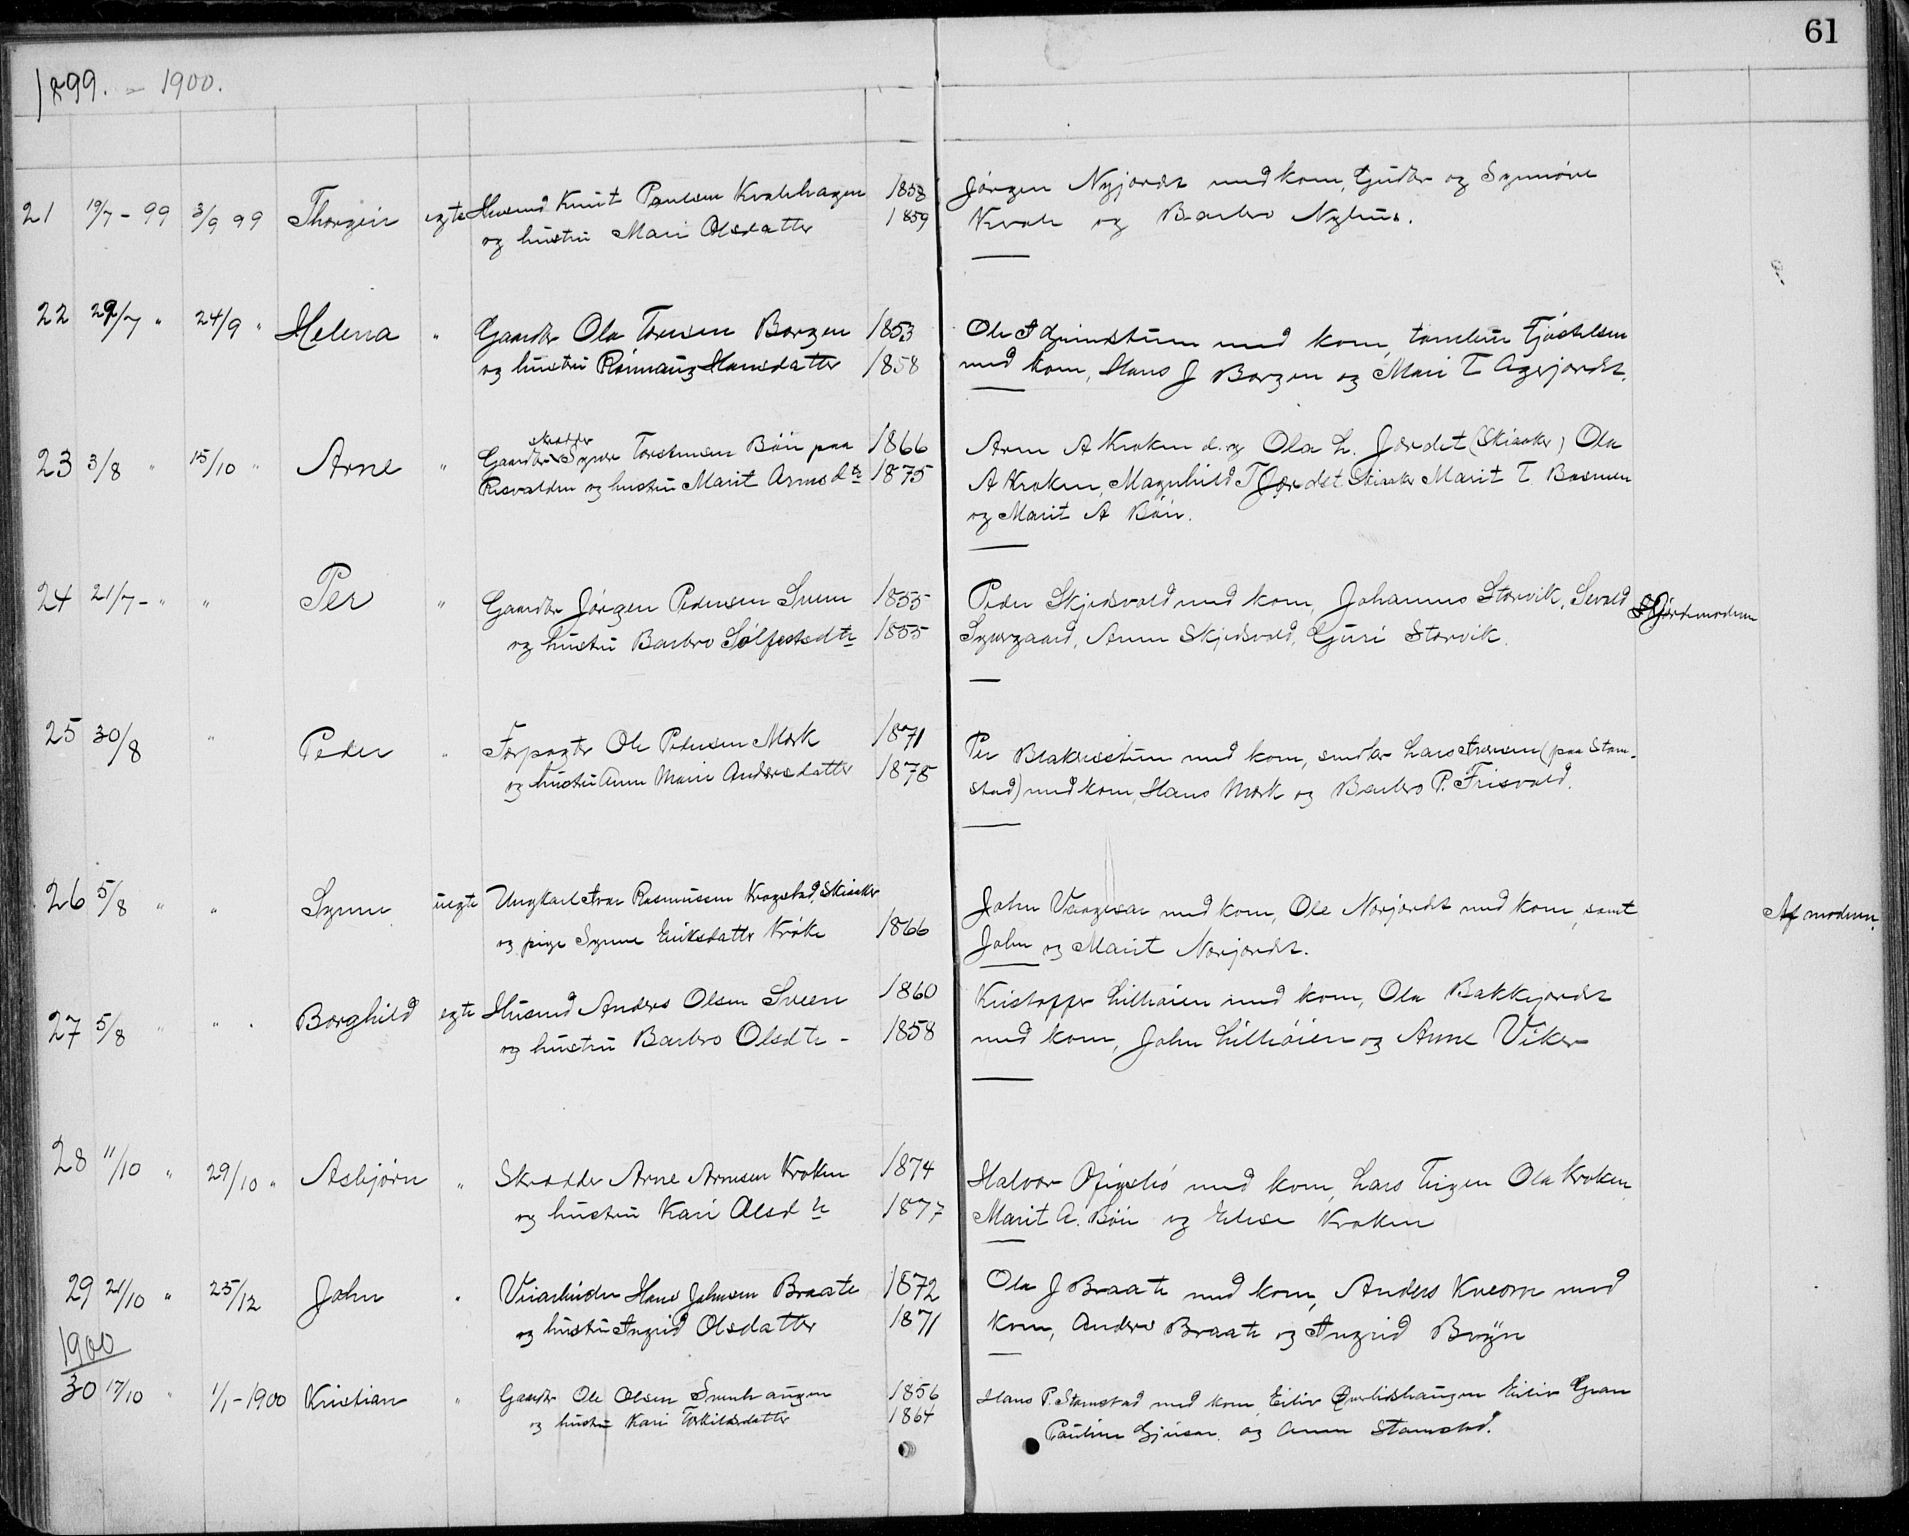 61
1899. - 1900.
21 19/7 - 99 3/9 99 Thorgeir egte Husmd Knut Paulsen Kvalehagen 1858 Jörgen Nyjordet med kone, Gudbr og Synnöve
og hustru Mari Olsdatter 1859 Kvale og Barbro Nyhus.
22 29/7 " 24/9 " Helena " Gaardbr Ola Toresen Borgen 1853 Ole med kone,
og hustru Rönnaug Hansdatter 1858 med kone, Hans J Borgen og Mari T Agejordet.
skrædder
23 3/8 " 15/10 " Arne " Gaardbr Syver Torstensen Böie paa 1866 Arne A Kroken d. og Ola L. Jordet (Skiaker) Ola
Risvolden og hustru Marit Arnesdtr 1875 A Kroken, Magnhild T Jordet Skiaker Marit T.
og Marit A Böie.
24 21/7 - " " Per " Gaardbr Jörgen Pedersen Sveen 1855 Peder Skjedsvold med kone, Johannes Storvik, Sevald
og hustru Barbro Sölfestsdtr 1855 Sygard, Anne Skjedsvold, Guri Storvik.
25 30/8 " Peder " Forpagter Ole Pedersen Mork 1871 Per med kone, smdbr Lars Iversen (paa Stam-
og hustru Anne Marie Andersdatter 1878 stad) med kone, Hans Mork og Barbro P. Frisvold.
26 5/8 " " Synne uegte Ungkarl Ivar Rasmussen Krogstad, Skiaker John med kone, Ole Norjordet med kone, samt Af moderen.
og pige Synne Eriksdatter Kröke 1866 John og Marit Norjordet.
27 5/8 " " Borghild egte Husmd Anders Olsen Sveen 1860 Kristoffer Lilleöien med kone, Ola Bakkejordet
og hustru Barbro Olsdtr - 1858 med kone, John Lilleöien og Anne Viker
28 11/10 " 29/10 " Asbjörn " Skrædder Arne Arnesen Kroken 1874 Halvor med kone, Lars Teigen Ola Kroken
og hustru Kari Olsdtr 1877 Marit A. Böie og Elise Kroken
29 21/10 " 25/12 John " Veiarbeider Hans Johnsen Braate 1872 Ola J Braate med kone, Anders Kveorn med
og hustru Ingrid Olsdatter 1871 kone, Anders Braate og Ingrid Bryn
1900
30 17/10 " 1/1 - 1900 Kristian " Gaardbr Ole Olsen Sveehaugen 1856 Hans P. Stamstad med kone, Eiliv Eiliv Gran
og hustru Kari Torkildsdatter 1864 Pauline og Anne Stamstad.